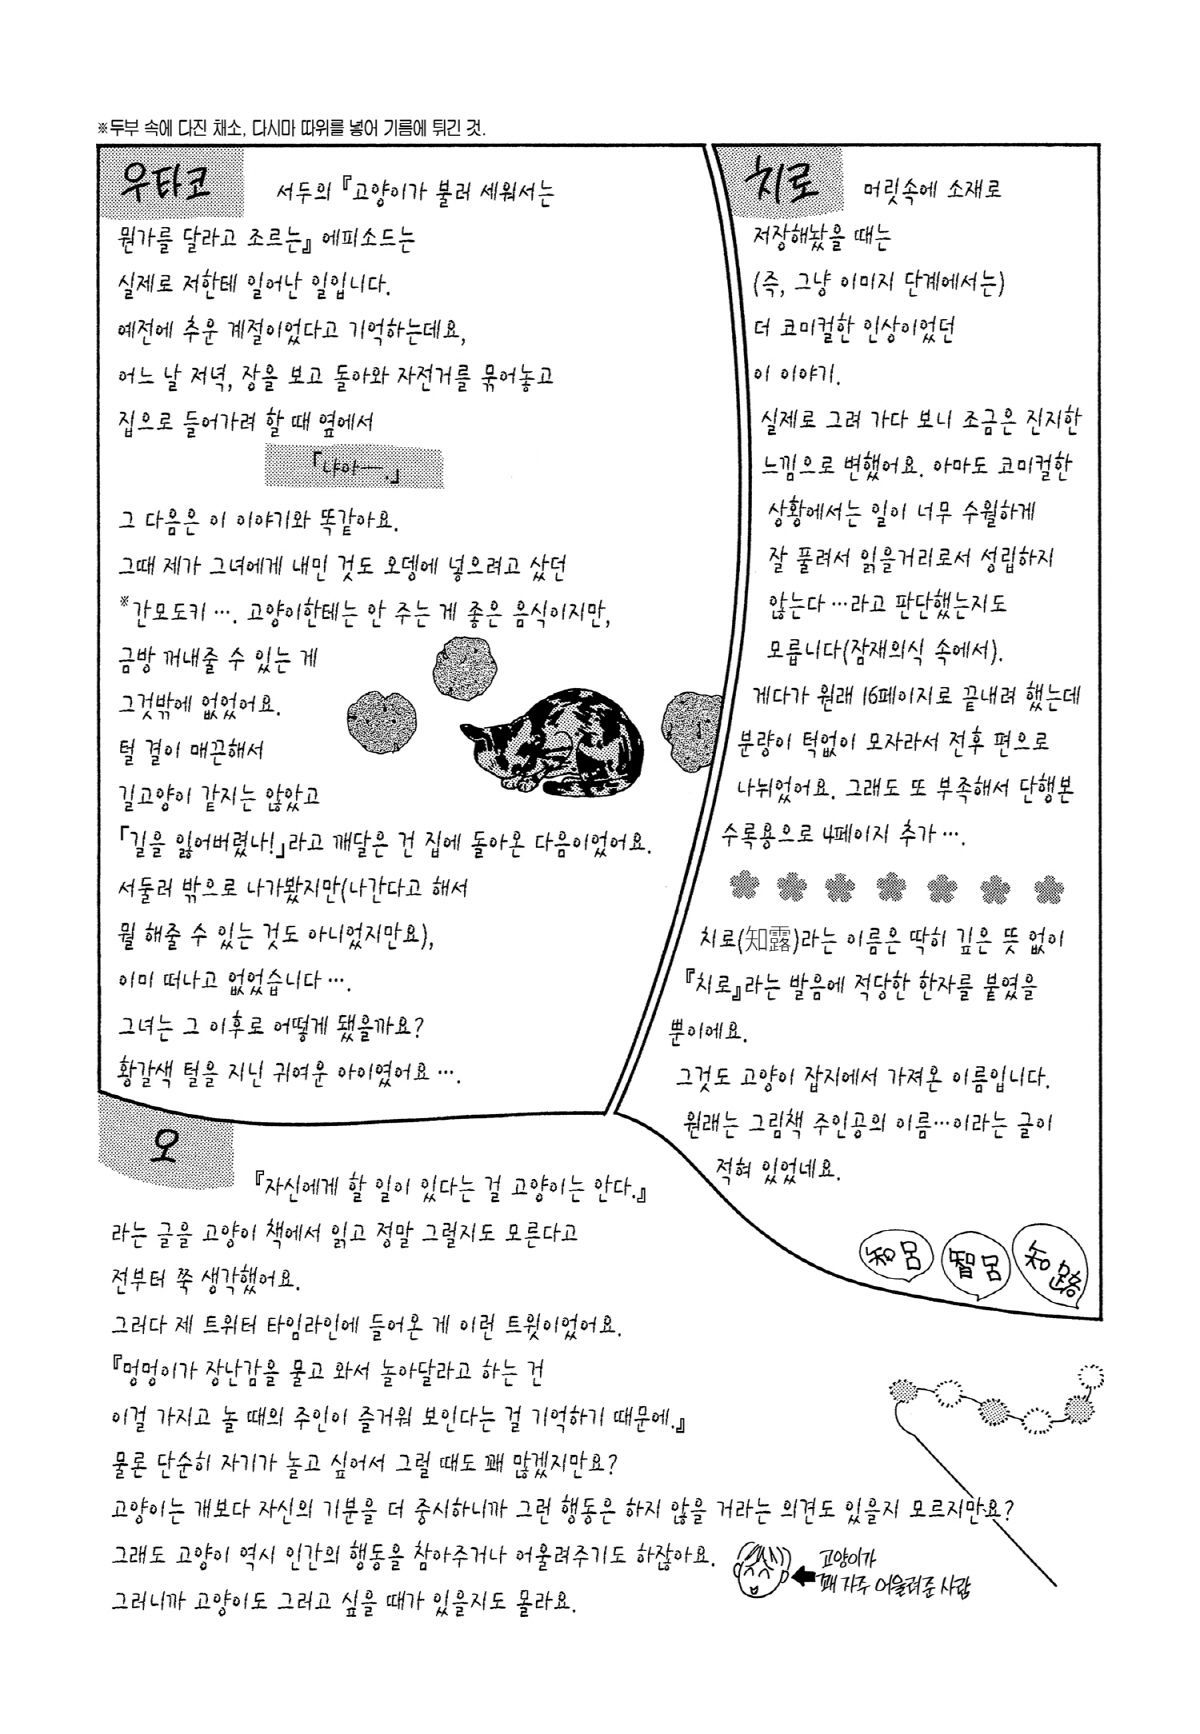 ※두부 속에 다진 채소, 다시마 따위를 넣어 기름에 튀긴 것.
우타코
서두의 『고양이가 불러 세워서는
뭔가를 달라고 조르는』 에피소드는
실제로 저한테 일어난 일입니다.
예전에 추운 계절이었다고 기억하는데요,
어느 날 저녁, 장을 보고 돌아와 자전거를 묶어놓고
집으로 들어가려 할 때 옆에서
「냐아―.」
그 다음은 이 이야기와 똑같아요.
그때 제가 그녀에게 내민 것도 오뎅에 넣으려고 샀던
※간모도키 …. 고양이한테는 안 주는 게 좋은 음식이지만,
금방 꺼내줄 수 있는 게
그것밖에 없었어요.
털 결이 매끈해서
길고양이 같지는 않았고
「길을 잃어버렸나!」라고 깨달은 건 집에 돌아온 다음이었어요.
서둘러 밖으로 나가봤지만(나간다고 해서
뭘 해줄 수 있는 것도 아니었지만요),
이미 떠나고 없었습니다 ….
그녀는 그 이후로 어떻게 됐을까요?
황갈색 털을 지닌 귀여운 아이였어요 ….
치로
머릿속에 소재로
저장해놨을 때는
(즉, 그냥 이미지 단계에서는)
더 코미컬한 인상이었던
이 이야기.
실제로 그려 가다 보니 조금은 진지한
느낌으로 변했어요. 아마도 코미컬한
상황에서는 일이 너무 수월하게
잘 풀려서 읽을거리로서 성립하지
않는다 …라고 판단했는지도
모릅니다(잠재의식 속에서).
게다가 원래 16페이지로 끝내려 했는데
분량이 턱없이 모자라서 전후 편으로
나뉘었어요. 그래도 또 부족해서 단행본
수록용으로 4페이지 추가 ….
치로(知露)라는 이름은 딱히 깊은 뜻 없이
『치로』라는 발음에 적당한 한자를 붙였을
뿐이에요.
그것도 고양이 잡지에서 가져온 이름입니다.
원래는 그림책 주인공의 이름…이라는 글이
적혀 있었네요.
知呂
智呂
知路
오
『자신에게 할 일이 있다는 걸 고양이는 안다.』
라는 글을 고양이 책에서 읽고 정말 그럴지도 모른다고
전부터 쭉 생각했어요.
그러다 제 트위터 타임라인에 들어온 게 이런 트윗이었어요.
『멍멍이가 장난감을 물고 와서 놀아달라고 하는 건
이걸 가지고 놀 때의 주인이 즐거워 보인다는 걸 기억하기 때문에.』
물론 단순히 자기가 놀고 싶어서 그럴 때도 꽤 많겠지만요?
고양이는 개보다 자신의 기분을 더 중시하니까 그런 행동은 하지 않을 거라는 의견도 있을지 모르지만요?
그래도 고양이 역시 인간의 행동을 참아주거나 어울려주기도 하잖아요.
그러니까 고양이도 그러고 싶을 때가 있을지도 몰라요.
고양이가
꽤 자주 어울려준 사람